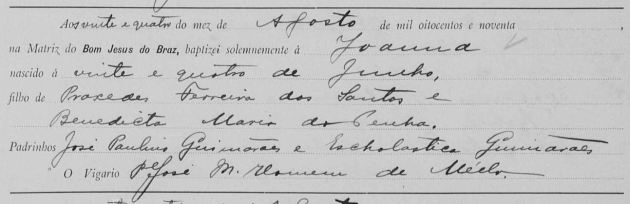 Aos vinte e quatro do mez de Agosto de mil oitocentos e noventa
na Matriz do Bom Jesus do Braz, baptizei solemnemente á Joanna
nascido á vinte e quatro de Junho,
filho de Praxedes Ferreira dos Santos e
Benedicta Maria da Penha.
Padrinhos José Paulino Guimarães e Escholastica Guimarães
O Vigario Pe José M. Homem de Méllo.